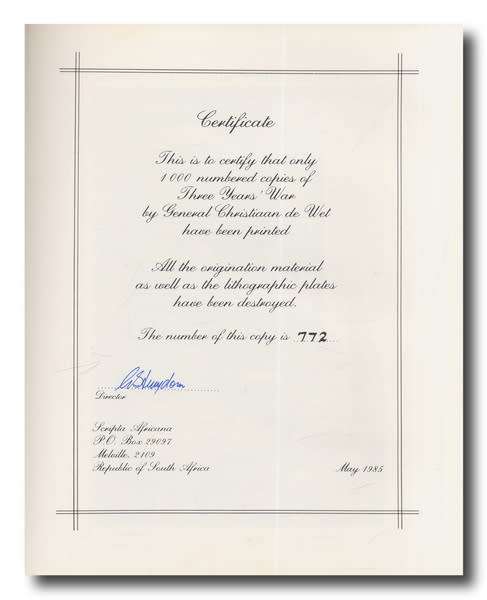 Certificate
This is to certify that only
1000 numbered copies of
Three Years' War
by General Christiaan de Wet
have been printed
All the origination material
as well as the lithographic plates
have been destroyed.
The number of this copy is ..772...
Director
Scripta Africana
P.O. Box 29097
Melville, 2109
Republic of South Africa
May 1985